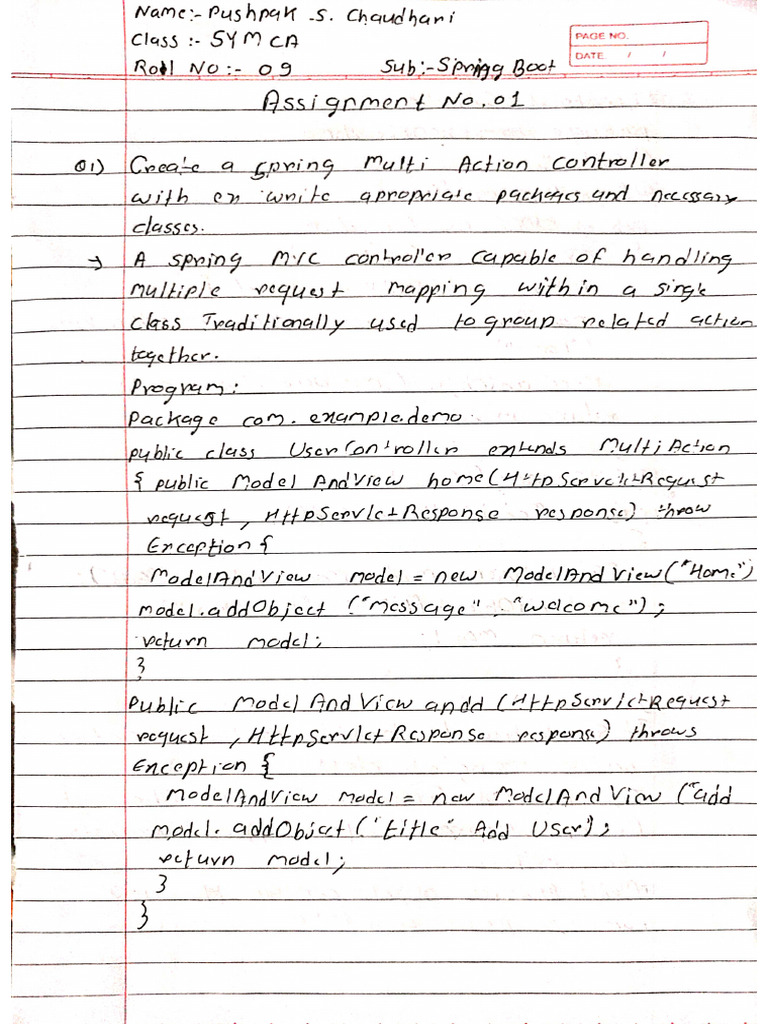 Name:- Pushpak .S. Chaudhari
Class :- SYMCA
PAGE NO.
DATE / /
Roll No :- 09 Sub:- Spring Boot
Assignment No. 01
Q1) Create a spring Multi Action Controller
with en write apropriate packages and necessary
classes.
→ A spring MVC controller capable of handling
multiple request mapping within a single
class Traditionally used to group related action
together.
Program:
Package com.example.demo.
public class UserController extends MultiAction
{ public Model AndView home(HttpServeletRequest
request, HttpServletResponse response) throw
Exception {
ModelAndView model = new ModelAndView("Home")
model.addObject ("message", "welcome");
return model;
}
Public Model And View andd (HttpServletRequest
request, HttpServletResponse response) throws
Exception {
ModelAndView model = new ModelAndView ("add
model. addObject ("title" Add User);
return model;
}
}